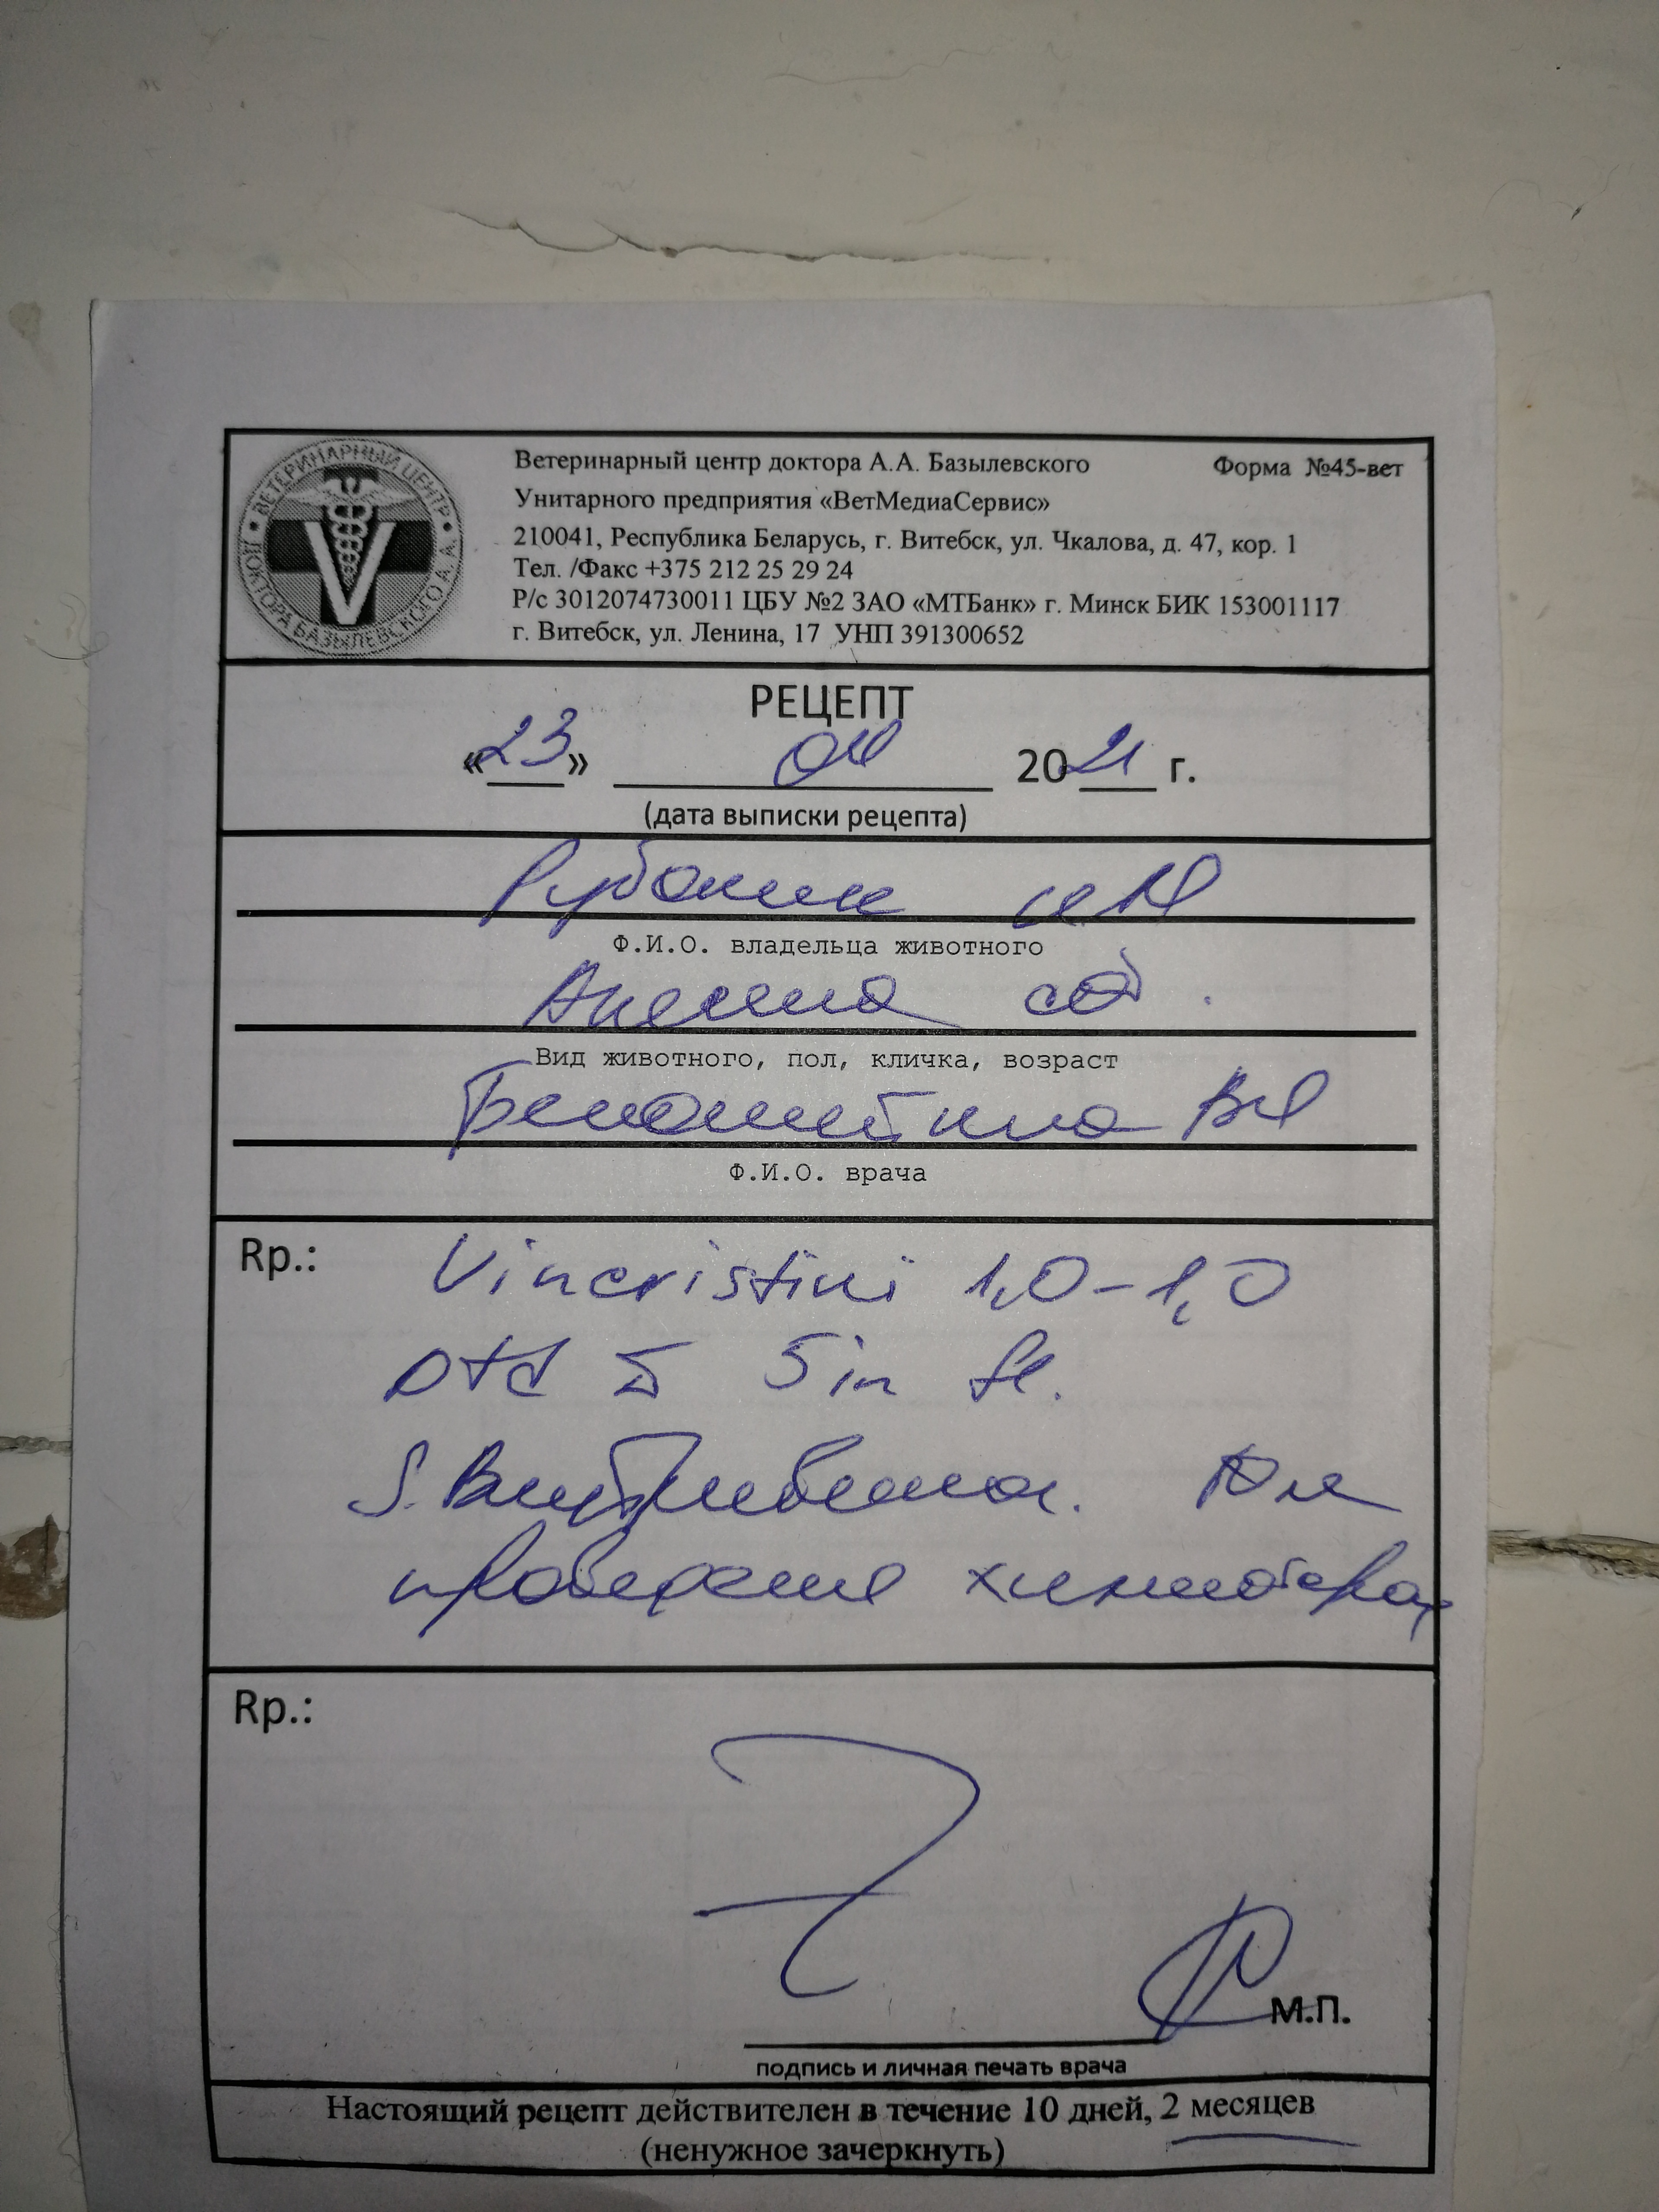 ВЕТЕРИНАРНЫЙ ЦЕНТР
ДОКТОРА БАЗЫЛЕВСКОГО А.А.
V
Ветеринарный центр доктора А.А. Базылевского Форма №45-вет
Унитарного предприятия «ВетМедиаСервис»
210041, Республика Беларусь, г. Витебск, ул. Чкалова, д. 47, кор. 1
Тел. /Факс +375 212 25 29 24
Р/с 3012074730011 ЦБУ №2 ЗАО «МТБанк» г. Минск БИК 153001117
г. Витебск, ул. Ленина, 17 УНП 391300652
РЕЦЕПТ
«23» 04 2021 г.
(дата выписки рецепта)
Ф.И.О. владельца животного
Вид животного, пол, кличка, возраст
Ф.И.О. врача
Rp.: Vincristini 1,0-1,0
5 in fl.
S. Внутривенно. Для
проведения химиотерап
Rp.:
М.П.
подпись и личная печать врача
Настоящий рецепт действителен в течение 10 дней, 2 месяцев
(ненужное зачеркнуть)